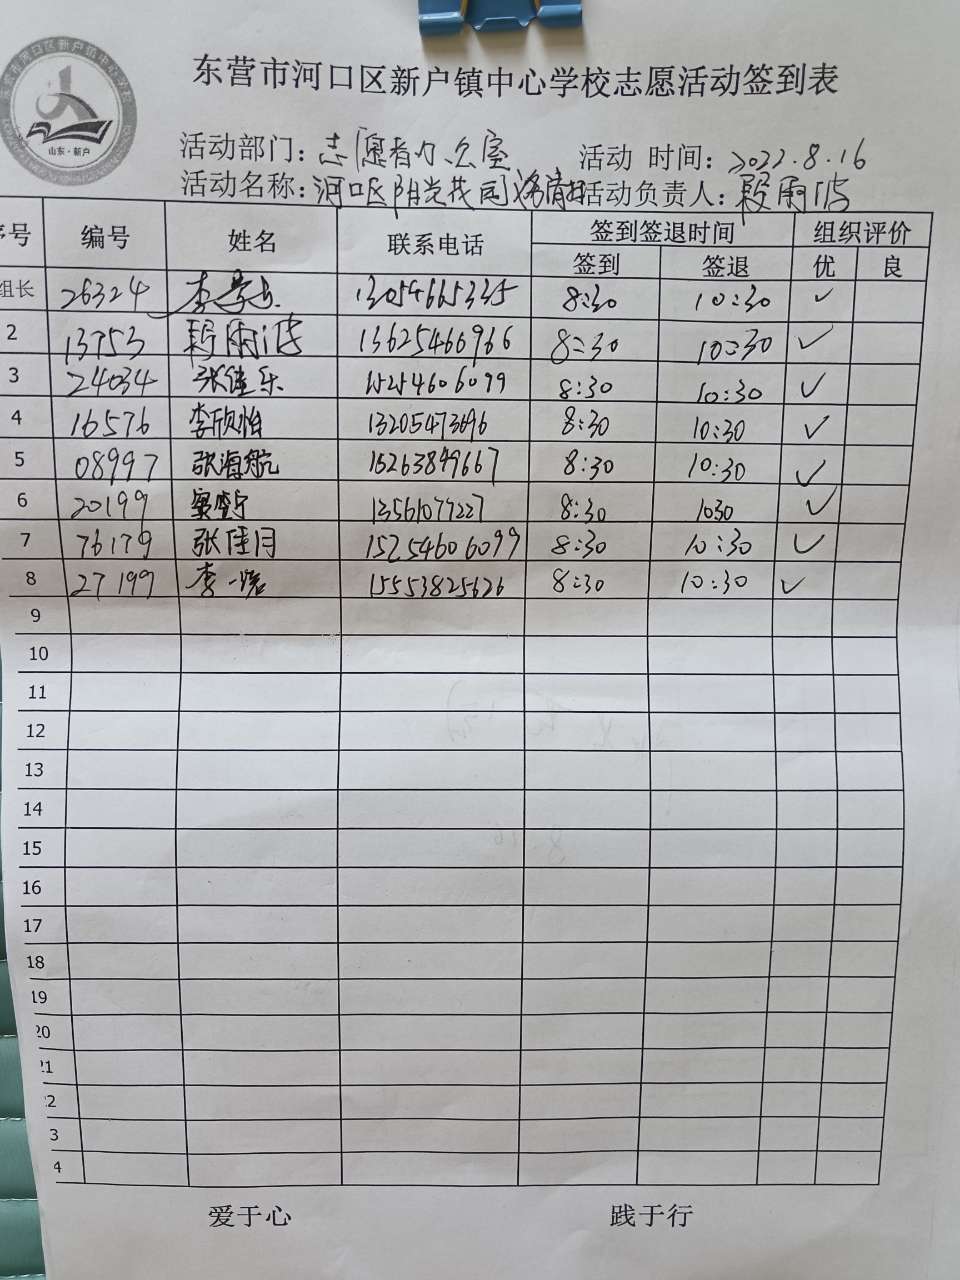 东营市河口区新户镇中心学校志愿活动签到表
山东·新户
活动部门：志愿者办公室 活动 时间：2022.8.16
活动名称：河口区阳光花园 活动负责人：段雨
序号 编号 姓名 联系电话 签到签退时间 组织评价
签到 签退 优 良
组长 26324 李 13054665335 8:30 10:30 ✓
2 13753 段雨 13625466966 8:30 10:30 ✓
3 24034 张佳乐 15254606099 8:30 10:30 ✓
4 16576 李欣怡 13205473696 8:30 10:30 ✓
5 08997 张海航 15263849667 8:30 10:30 ✓
6 20199 13561077227 8:30 1030 ✓
7 76179 张佳月 15254606099 8:30 10:30 ✓
8 27199 李一诺 15553825626 8:30 10:30 ✓
9
10
11
12
13
14
15
16
17
18
19
20
21
22
3
4
爱于心 践于行